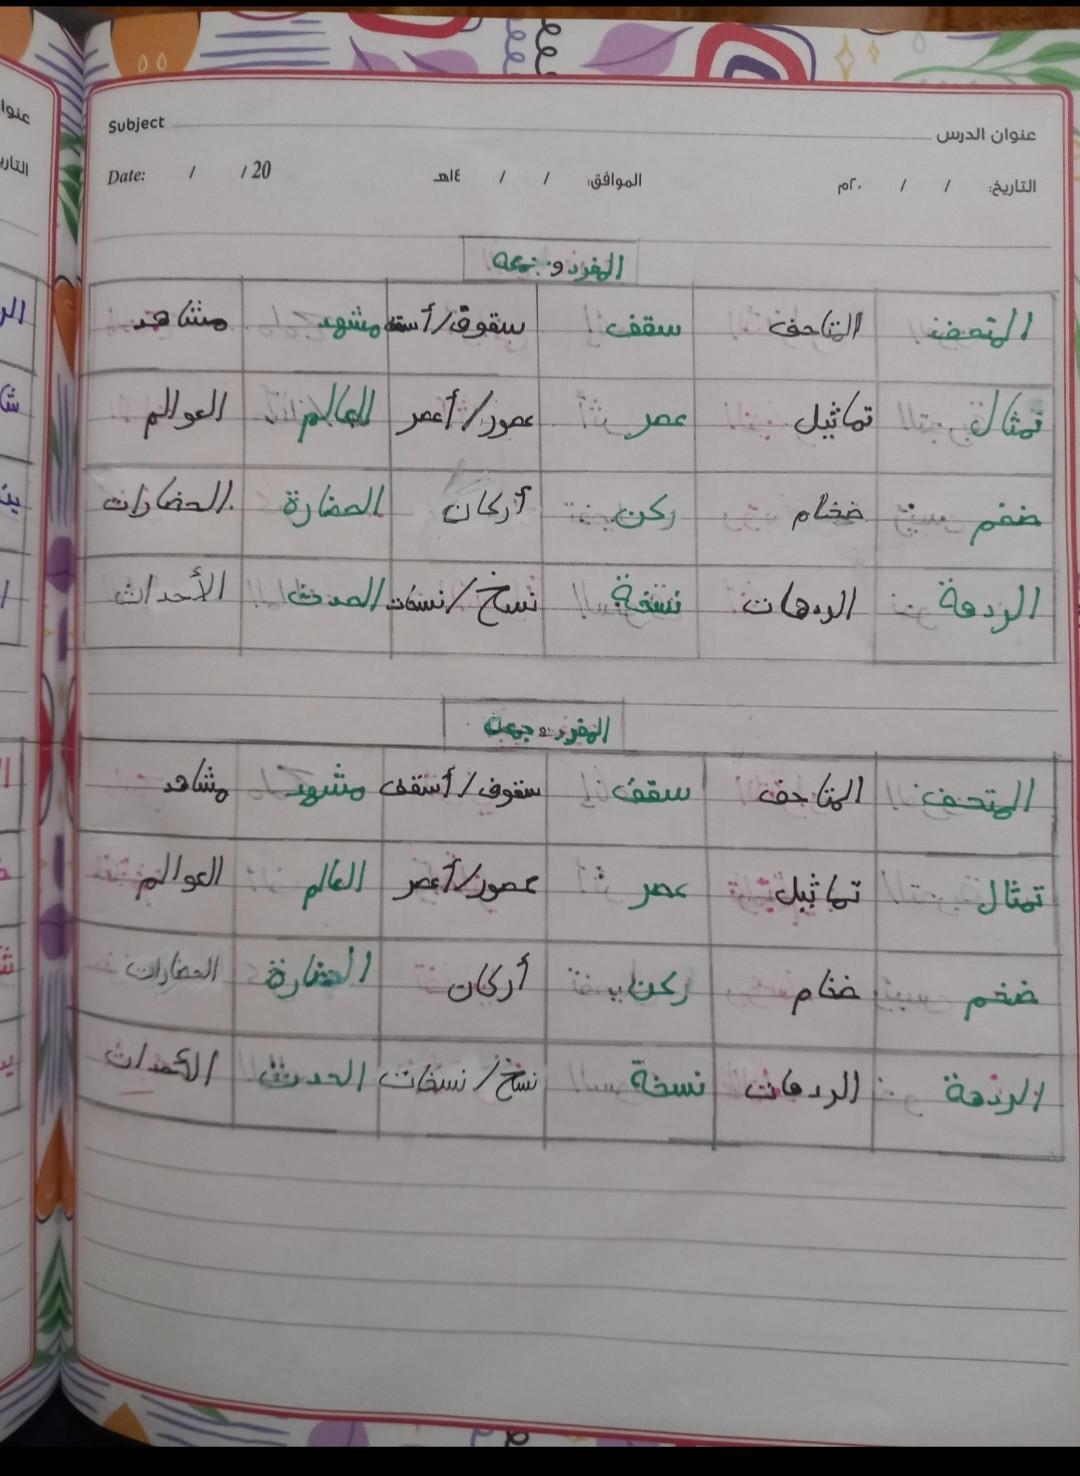 عنوان الدرس Subject
التاريخ: / / ٢٠م الموافق: / / ١٤هـ Date: / / 20
المفرد و جمعه
المتحف المتاحف سقف سقوف/أسقف مشهد مشاهد
تمثال تماثيل عصر عصور/أعصر العالم العوالم
ضخم ضخام ركن أركان الحضارة الحضارات
الردهة الردهات نسخة نسخ/نسخات الحدث الأحداث
المفرد و جمعه
المتحف المتاحف سقف سقوف/أسقف مشهد مشاهد
تمثال تماثيل عصر عصور/أعصر العالم العوالم
ضخم ضخام ركن أركان الحضارة الحضارات
الردهة الردهات نسخة نسخ/نسخات الحدث الأحداث